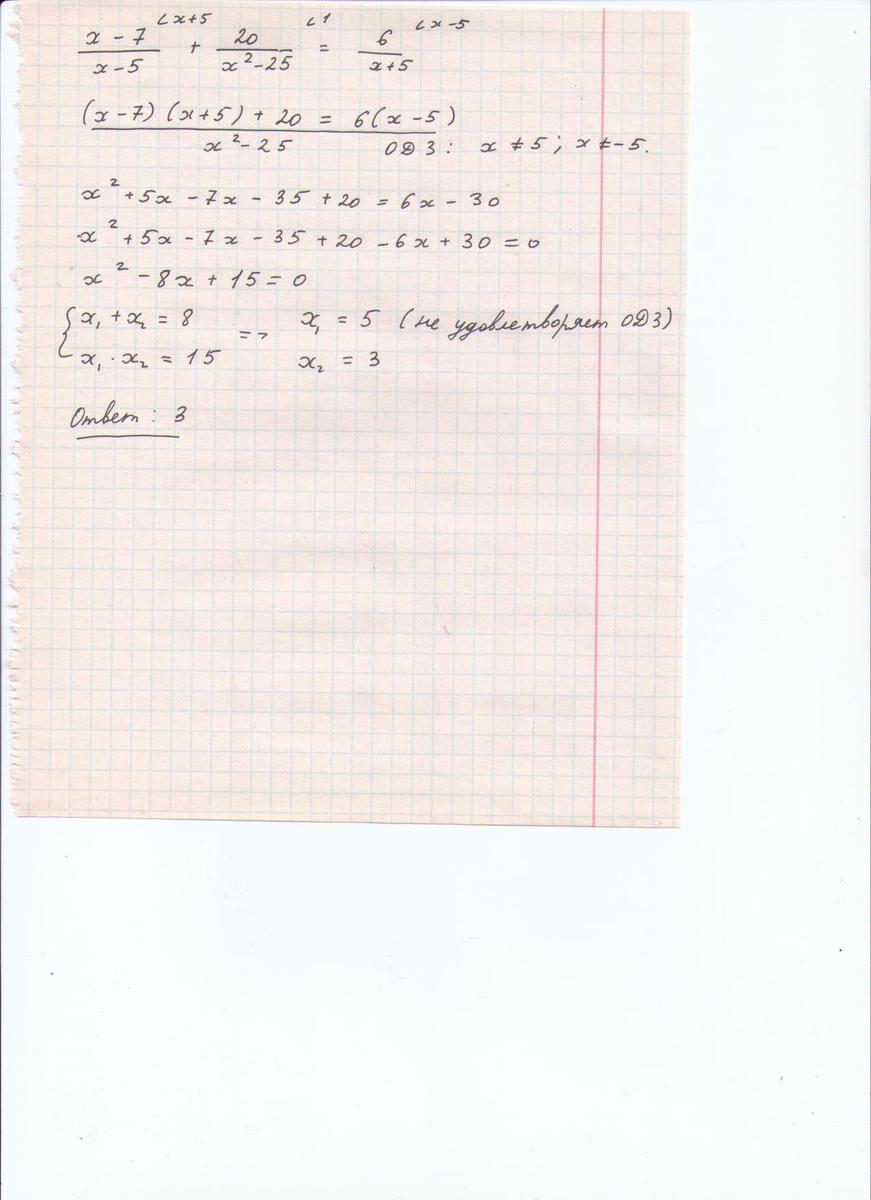 x - 7 / x - 5 ∠x+5 + 20 / x² - 25 ∠1 = 6 / x+5 ∠x-5
(x - 7)(x + 5) + 20 = 6(x - 5)
x² - 25 ОДЗ: x ≠ 5; x ≠ -5.
x² + 5x - 7x - 35 + 20 = 6x - 30
x² + 5x - 7x - 35 + 20 - 6x + 30 = 0
x² - 8x + 15 = 0
{ x₁ + x₂ = 8 => x₁ = 5 (не удовлетворяет ОДЗ)
x₁ · x₂ = 15 x₂ = 3
Ответ: 3